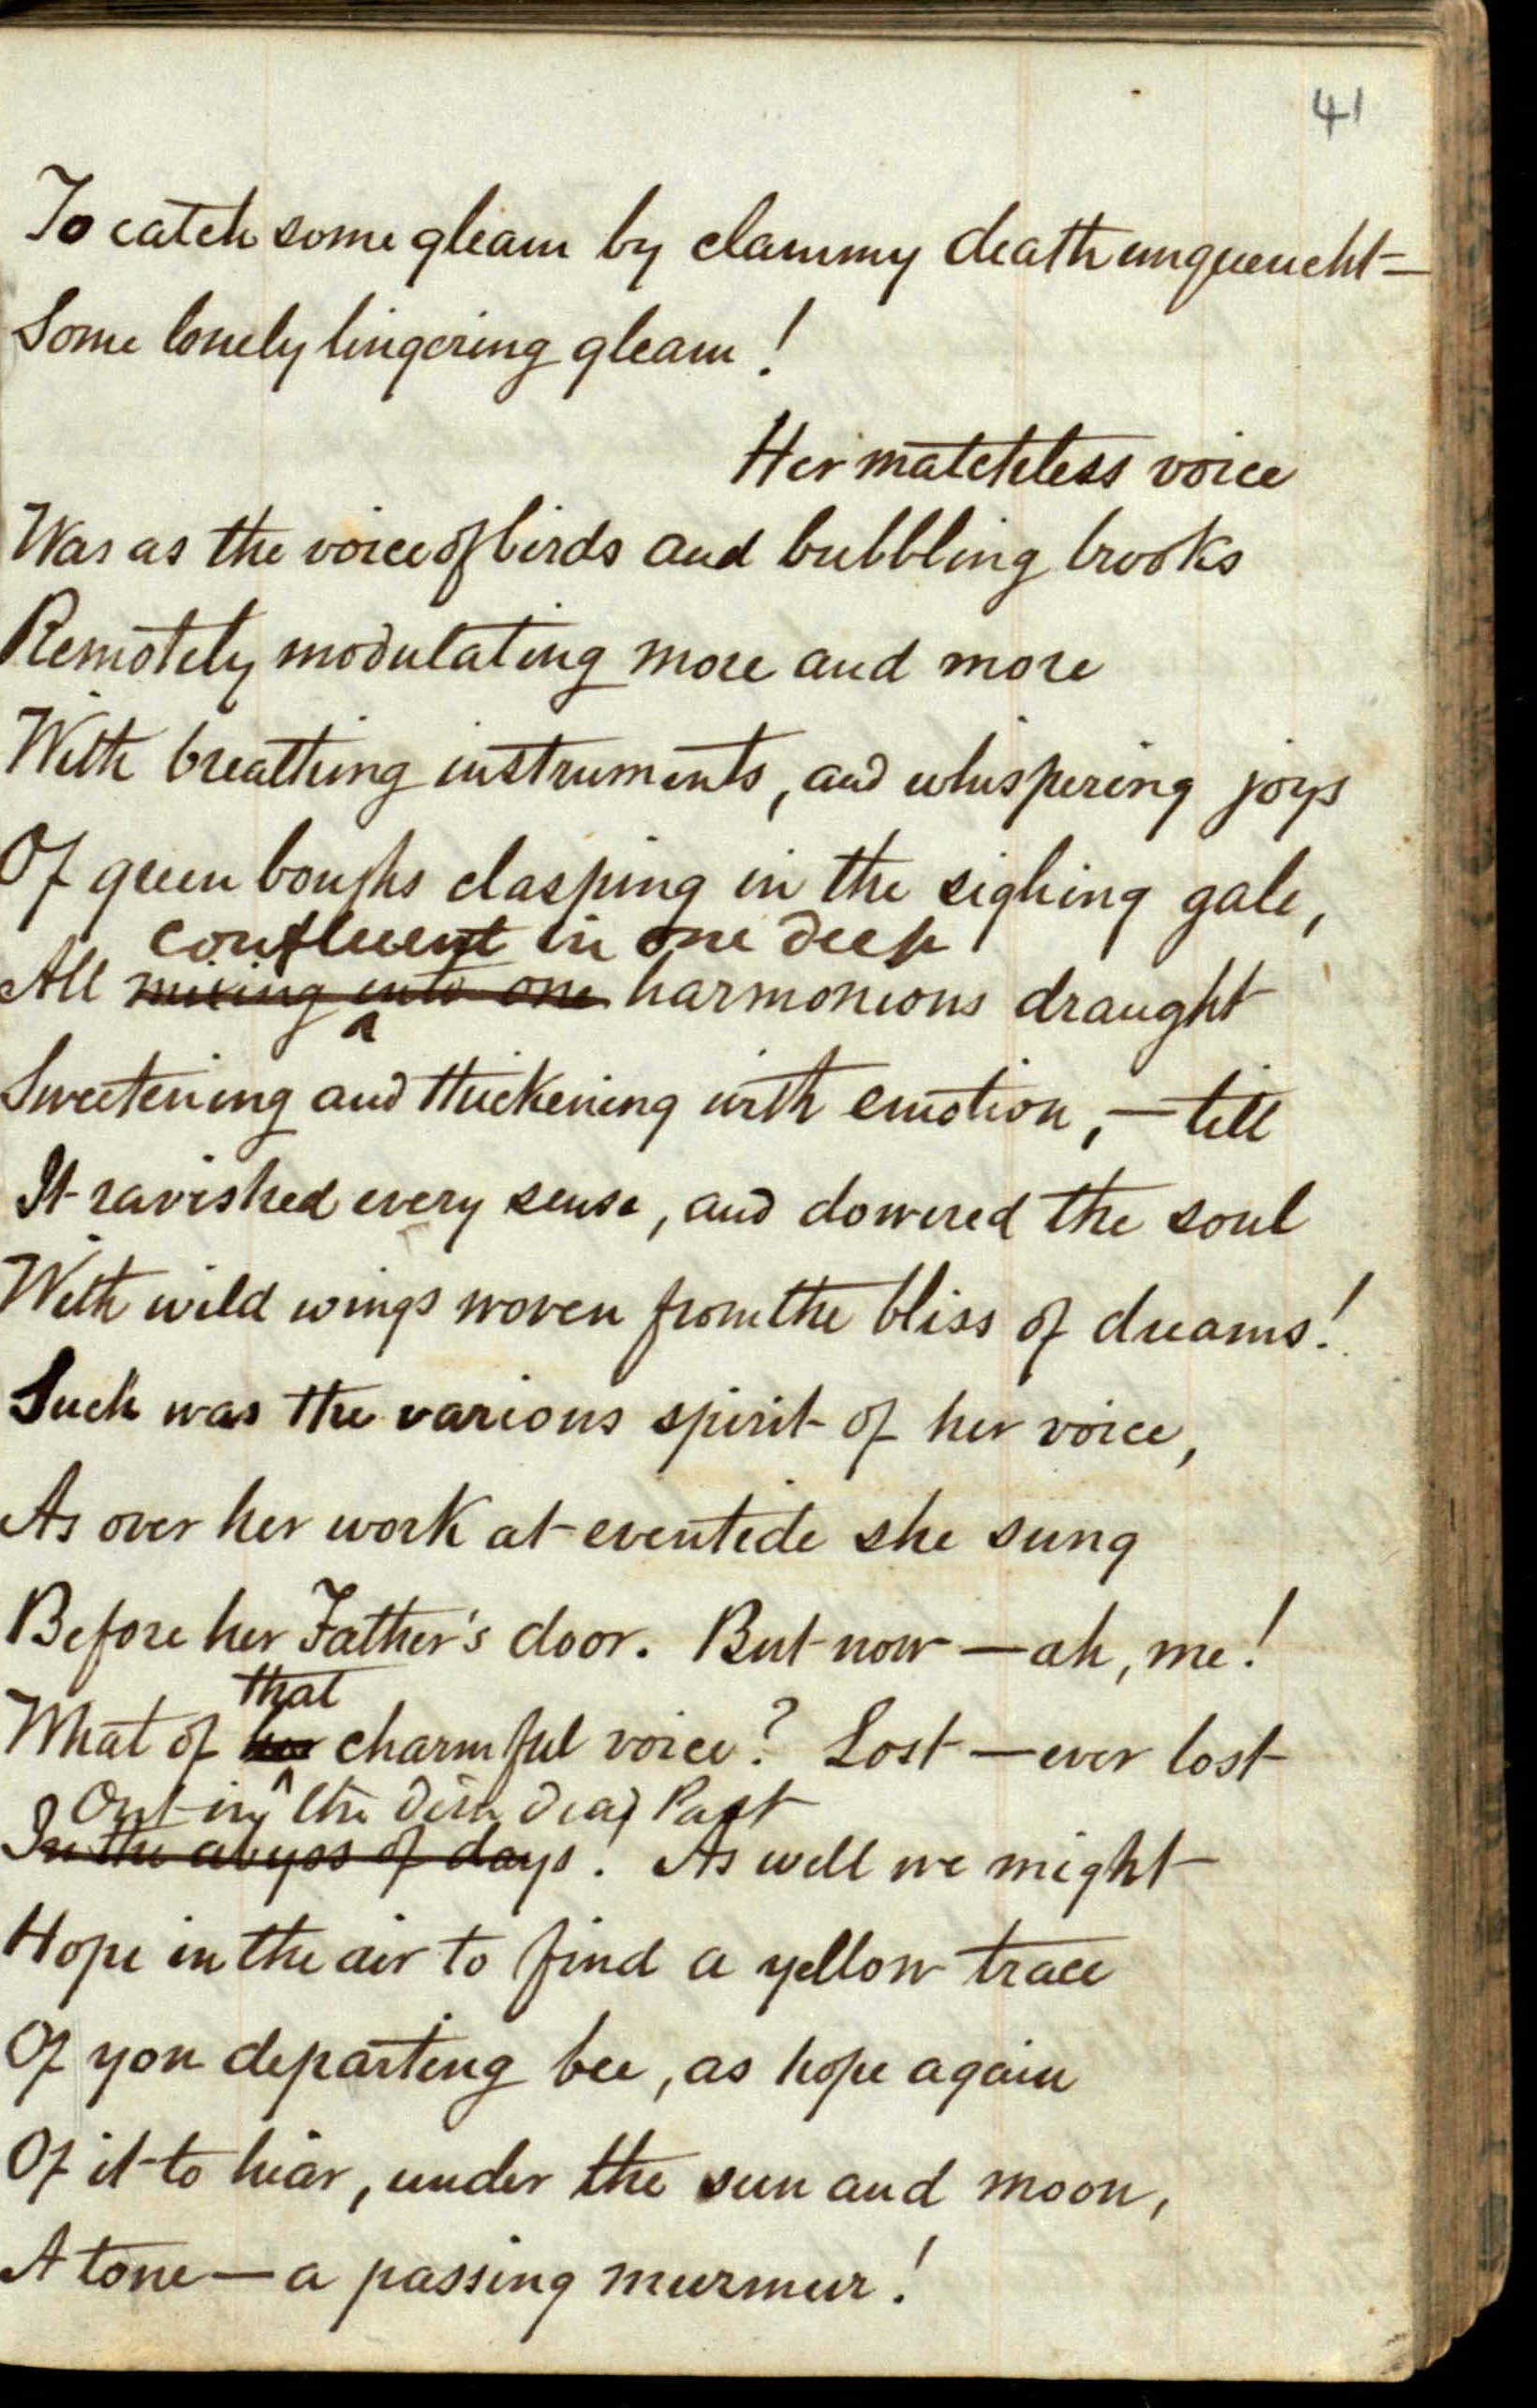 41
To catch some gleam by clammy death unquencht—
Some lonely lingering gleam!
Her matchless voice
Was as the voice of birds and bubbling brooks
Remotely modulating more and more
With breathing instruments, and whispering joys
Of green boughs clasping in the sighing gale,
confluent in one deep
All mixing into one harmonious draught
Sweetening and thickening with emotion,—till
It ravished every sense, and dowered the soul
With wild wings woven from the bliss of dreams!
Such was the various spirit of her voice,
As over her work at eventide she sung
Before her Father's door. But now—ah, me!
that
What of her charmful voice? Lost—ever lost
Out in the dim dead Past
In the abyss of days! As well we might
Hope in the air to find a yellow trace
Of yon departing bee, as hope again
Of it to hear, under the sun and moon,
A tone—a passing murmur!